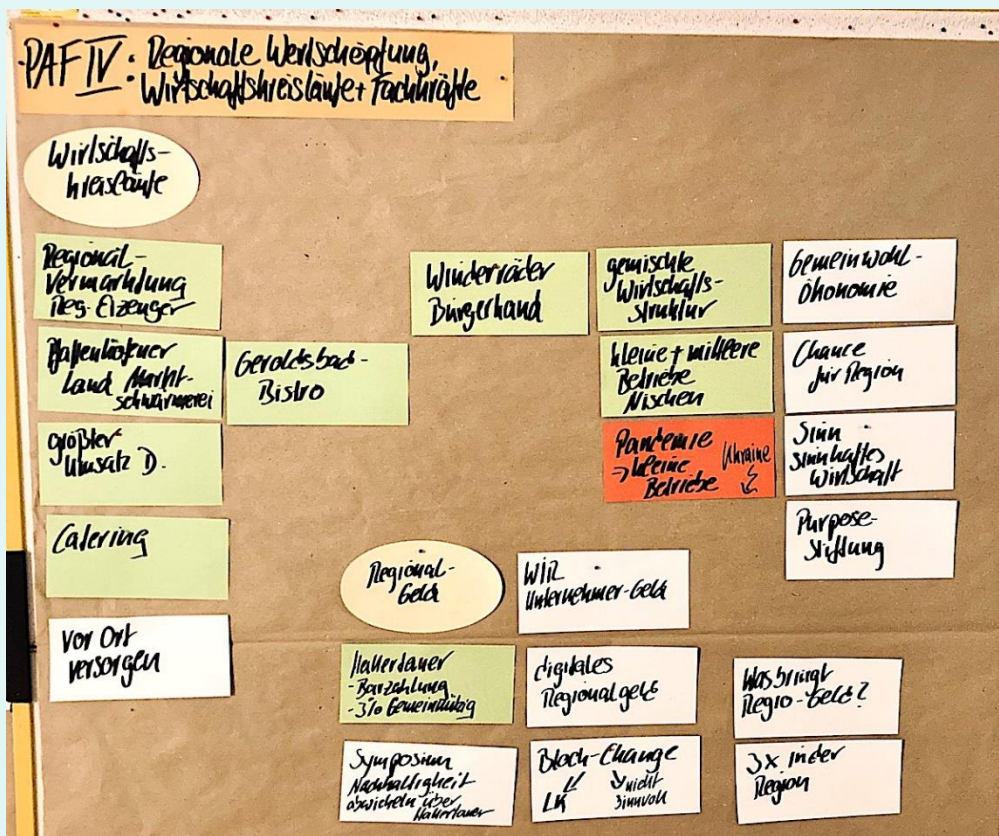 PAF IV: Regionale Wertschöpfung,
Wirtschaftskreisläufe + Fachkräfte
Wirtschafts-
kreisläufe
Regional-
Vermarktung
Reg. Erzeuger
Pfaffenhofener
Land Markt-
schwärmerei
größter
Umsatz D.
Catering
Vor Ort
versorgen
Geroldsbach-
Bistro
Windräder
Bürgerhand
gemischte
Wirtschafts-
struktur
kleine + mittlere
Betriebe
Nischen
Pandemie
→ kleine
Betriebe
Ukraine
Gemeinwohl-
Ökonomie
Chance
für Region
Sinn
sinnhaftes
Wirtschaft
Purpose-
Stiftung
Regional-
Geld
WIR
Unternehmer-Geld
Hallertauer
- Barzahlung
- 3% Gemeinnützig
digitales
Regionalgeld
Was bringt
Regio-Geld?
Symposium
Nachhaltigkeit
abwickeln über
Hallertauer
Block-Change
LK
nicht
sinnvoll
3x in der
Region